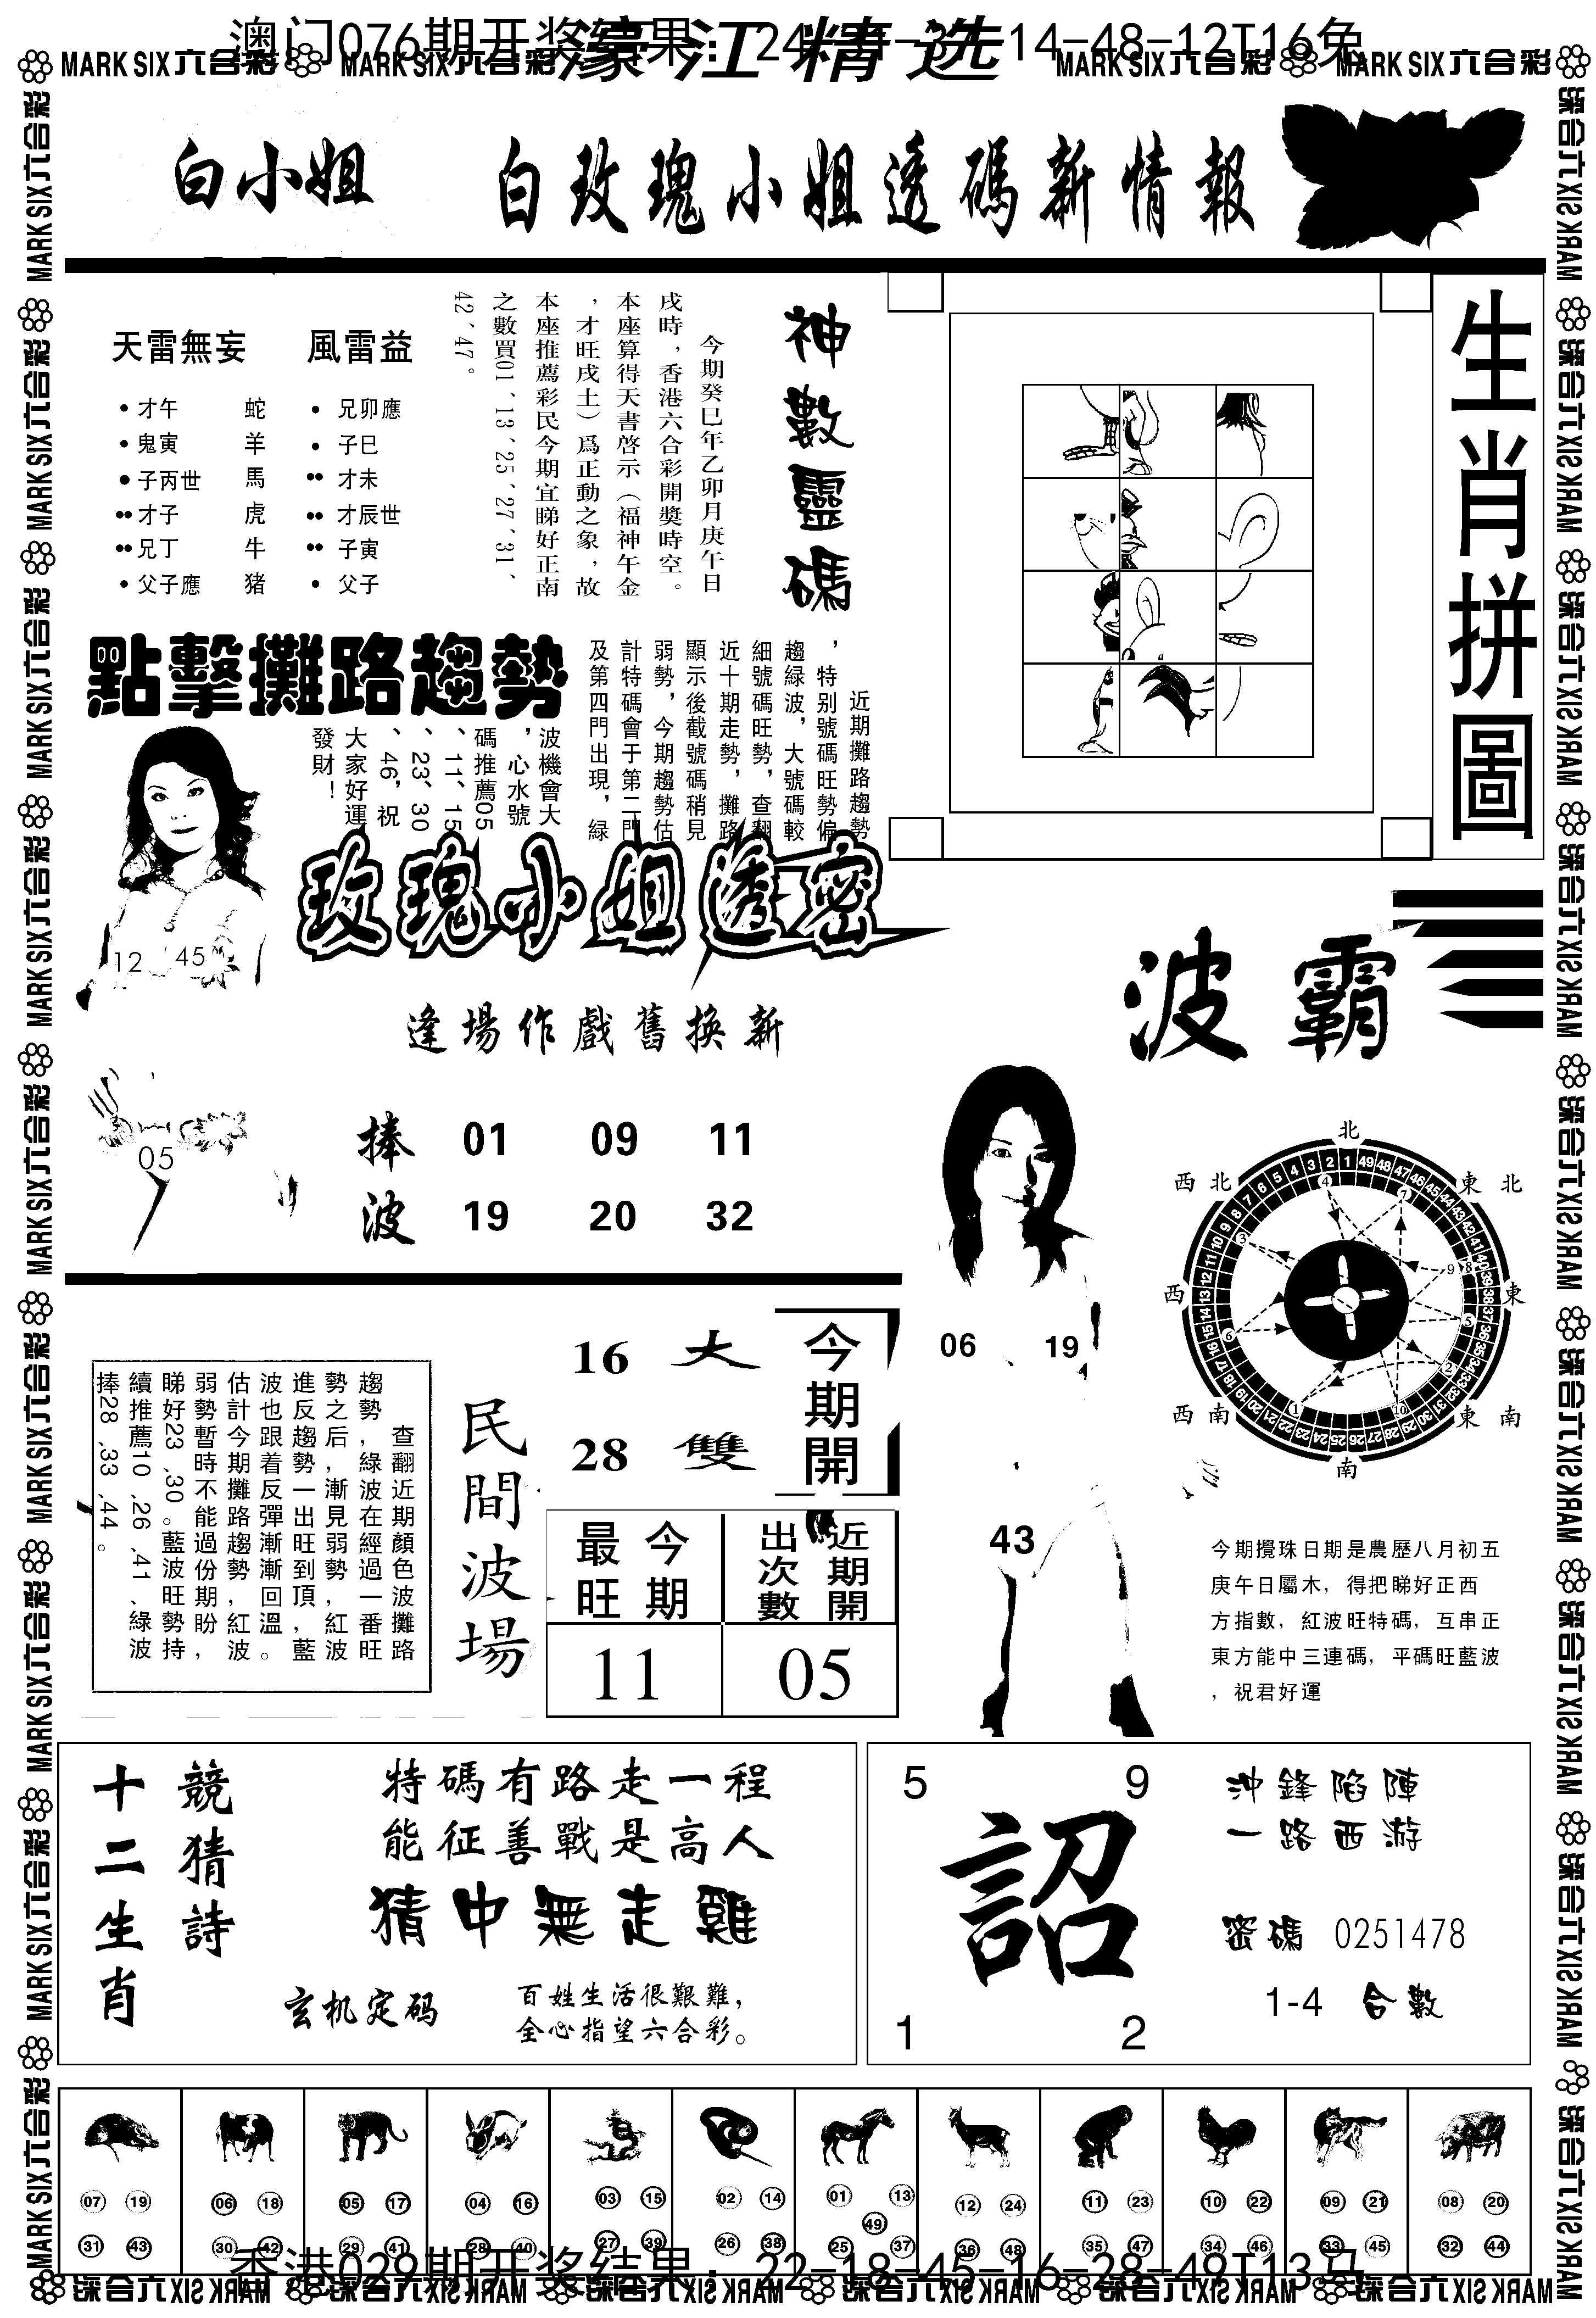 濠江精选
MARK SIX六合彩 MARK SIX六合彩 MARK SIX六合彩 MARK SIX六合彩
白小姐
白玫瑰小姐透碼新情報
天雷無妄 風雷益
才午 蛇 兄卯應
鬼寅 羊 子巳
子丙世 馬 才未
才子 虎 才辰世
兄丁 牛 子寅
父子應 猪 父子
神數靈碼
今期癸巳年乙卯月庚午日
戌時，香港六合彩開獎時空。
本座算得天書啓示（福神午金
，才旺戌土）爲正動之象，故
本座推薦彩民今期宜睇好正南
之數買01、13、25、27、31、
42、47。
生肖拼圖
點擊攤路趨勢
近期攤路趨勢
，特别號碼旺勢偏
趨緑波，大號碼較
細號碼旺勢，查翻
近十期走勢，攤路
顯示後截號碼稍見
弱勢，今期趨勢估
計特碼會于第二門
及第四門出現，緑
波機會大
，心水號
碼推薦05
、11、15
、23、30
、46，祝
大家好運
發財！
12 45
玫瑰小姐透密
逢場作戲舊换新
05
捧 01 09 11
波 19 20 32
波霸
06 19
43
北
西北 東北
西 東
西南 東南
南
今期攪珠日期是農歷八月初五
庚午日屬木，得把睇好正西
方指數，紅波旺特碼，互串正
東方能中三連碼，平碼旺藍波
，祝君好運
今期開
大 16
雙 28
民間波場
查翻近期顏色波攤路
趨勢，綠波在經過一番旺
勢之后，漸見弱勢，紅波
進反趨勢一出旺到頂，藍
波也跟着反彈漸漸回溫。
估計今期攤路趨勢，紅波
弱勢暫時不能過份期盼，
睇好23、30。藍波旺勢持
續推薦10、26、41、綠波
捧28、33、44。
今期最旺 近期開出次數
11 05
十二生肖
競猜詩
特碼有路走一程
能征善戰是高人
猜中無走雞
玄机定码
百姓生活很艱難，
全心指望六合彩。
5 9
詔
1 2
沖鋒陷陣
一路西游
密碼 0251478
1-4 合數
07 19 06 18 05 17 04 16 03 15 02 14 01 13 12 24 11 23 10 22 09 21 08 20
49
31 43 30 42 29 41 28 40 27 39 26 38 25 37 36 48 35 47 34 46 33 45 32 44
香港029期开奖结果：22-18-45-16-28-49T13马